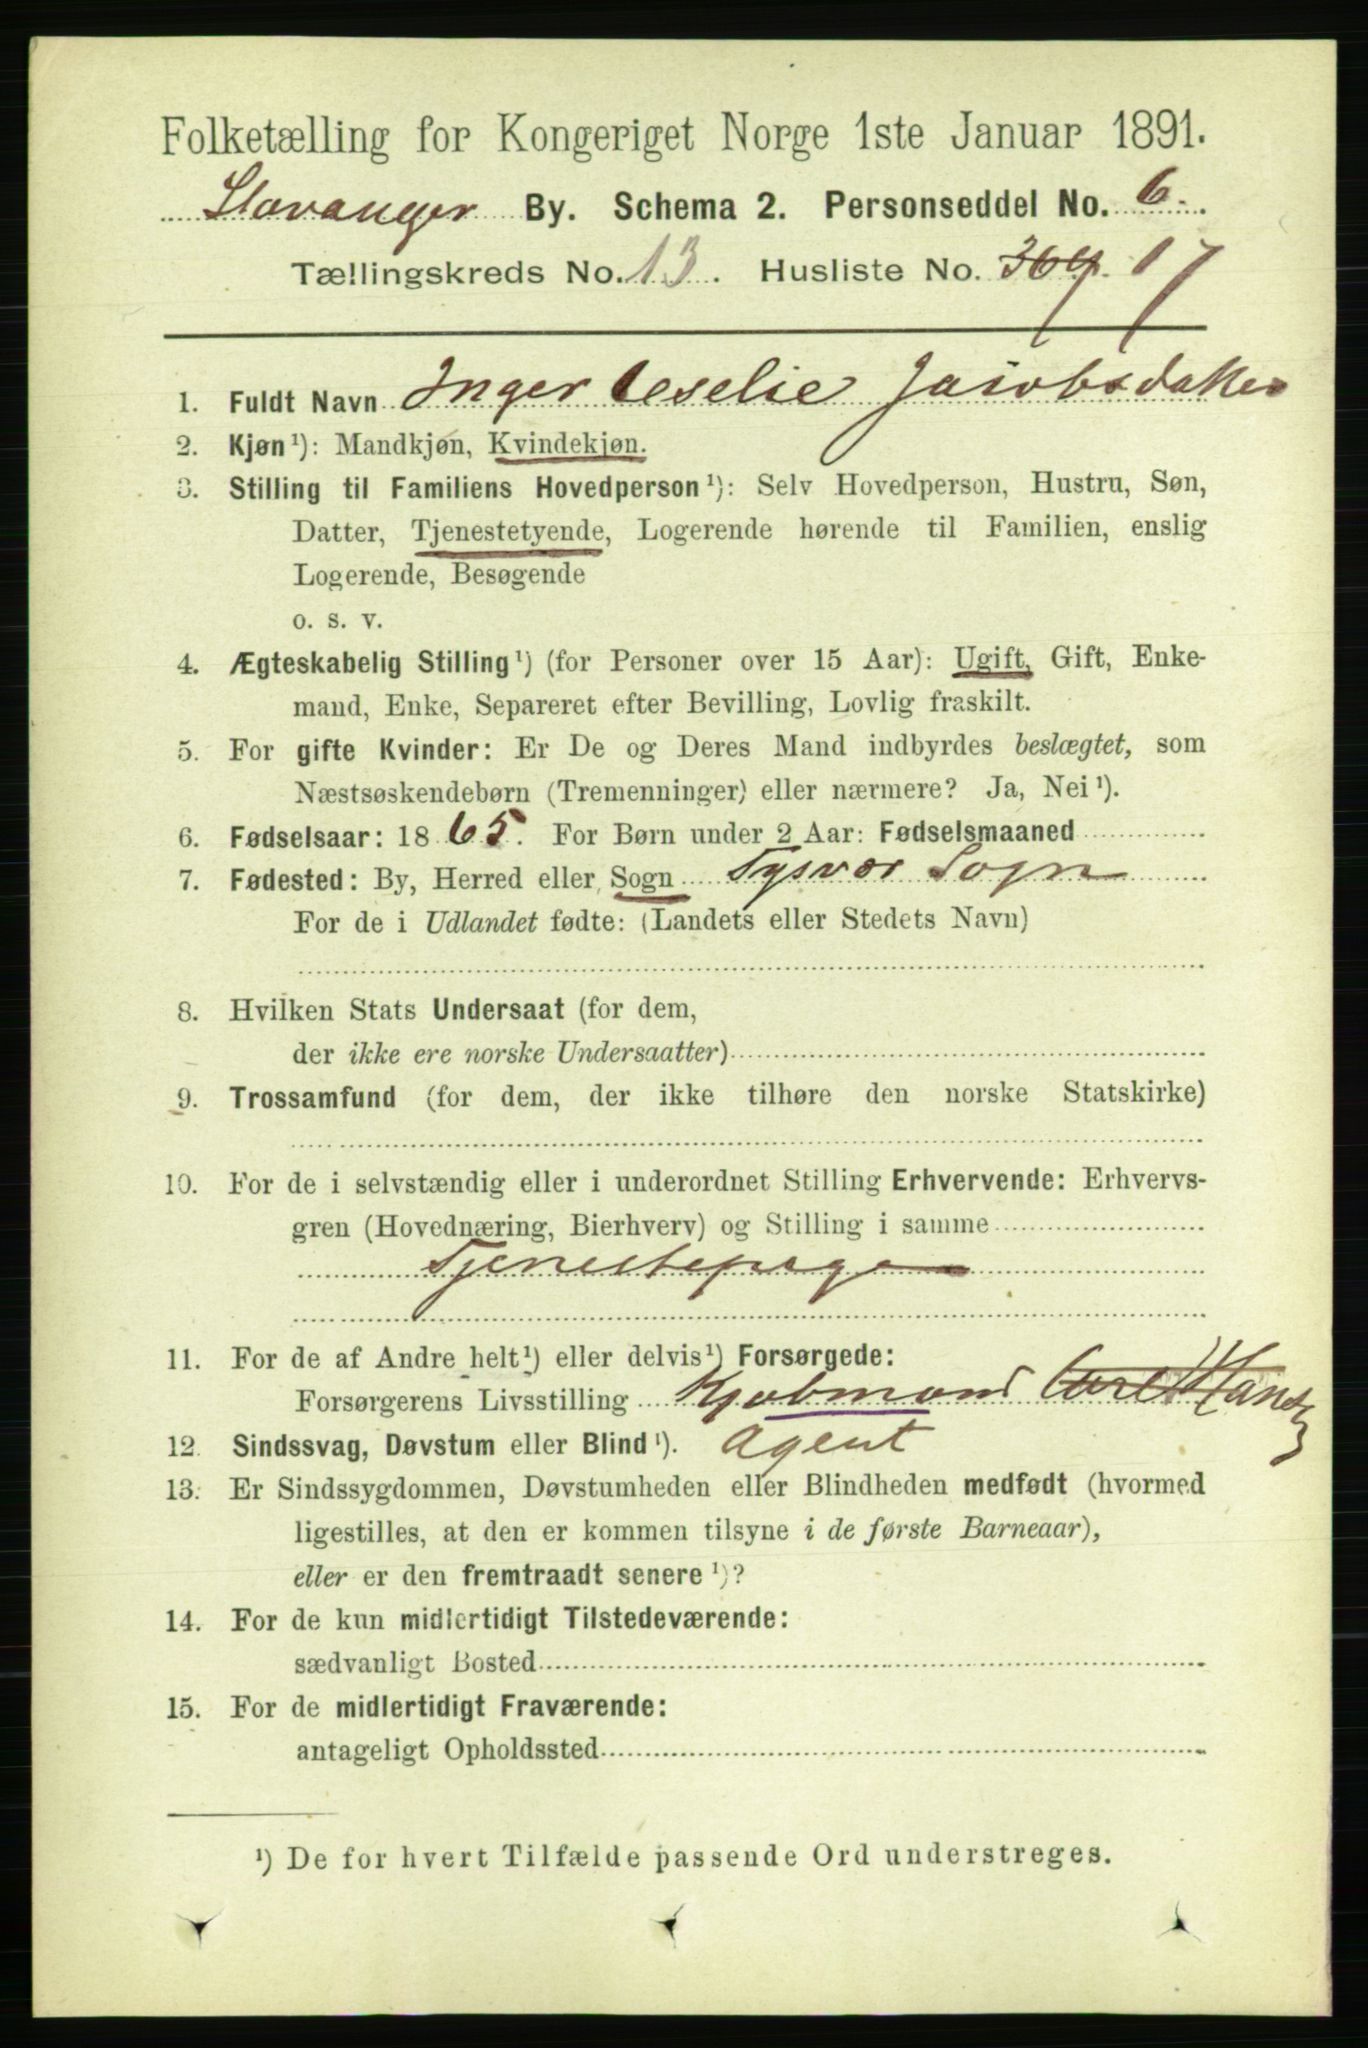 Folketælling for Kongeriget Norge 1ste Januar 1891.
Stavanger By. Schema 2. Personseddel No. 6.
Tællingskreds No. 13. Husliste No. 369. 17
1. Fuldt Navn Inger Ceselie Jacobsdatter
2. Kjøn¹): Mandkjøn, Kvindekjøn.
3. Stilling til Familiens Hovedperson¹): Selv Hovedperson, Hustru, Søn,
Datter, Tjenestetyende, Logerende hørende til Familien, enslig
Logerende, Besøgende
o. s. v.
4. Ægteskabelig Stilling¹) (for Personer over 15 Aar): Ugift, Gift, Enke-
mand, Enke, Separeret efter Bevilling, Lovlig fraskilt.
5. For gifte Kvinder: Er De og Deres Mand indbyrdes beslægtet, som
Næstsøskendebørn (Tremenninger) eller nærmere? Ja, Nei¹).
6. Fødselsaar: 1865. For Børn under 2 Aar: Fødselsmaaned
7. Fødested: By, Herred eller Sogn Tysvær Sogn
For de i Udlandet fødte: (Landets eller Stedets Navn)
8. Hvilken Stats Undersaat (for dem,
der ikke ere norske Undersaatter)
9. Trossamfund (for dem, der ikke tilhøre den norske Statskirke)
10. For de i selvstændig eller i underordnet Stilling Erhvervende: Erhvervs-
gren (Hovednæring, Bierhverv) og Stilling i samme
Tjenestepige
11. For de af Andre helt¹) eller delvis¹) Forsørgede:
Forsørgerens Livsstilling Kjøbmand Carl Hansen
12. Sindssvag, Døvstum eller Blind¹). Agent
13. Er Sindssygdommen, Døvstumheden eller Blindheden medfødt (hvormed
ligestilles, at den er kommen tilsyne i de første Barneaar),
eller er den fremtraadt senere¹)?
14. For de kun midlertidigt Tilstedeværende:
sædvanligt Bosted
15. For de midlertidigt Fraværende:
antageligt Opholdssted
¹) De for hvert Tilfælde passende Ord understreges.